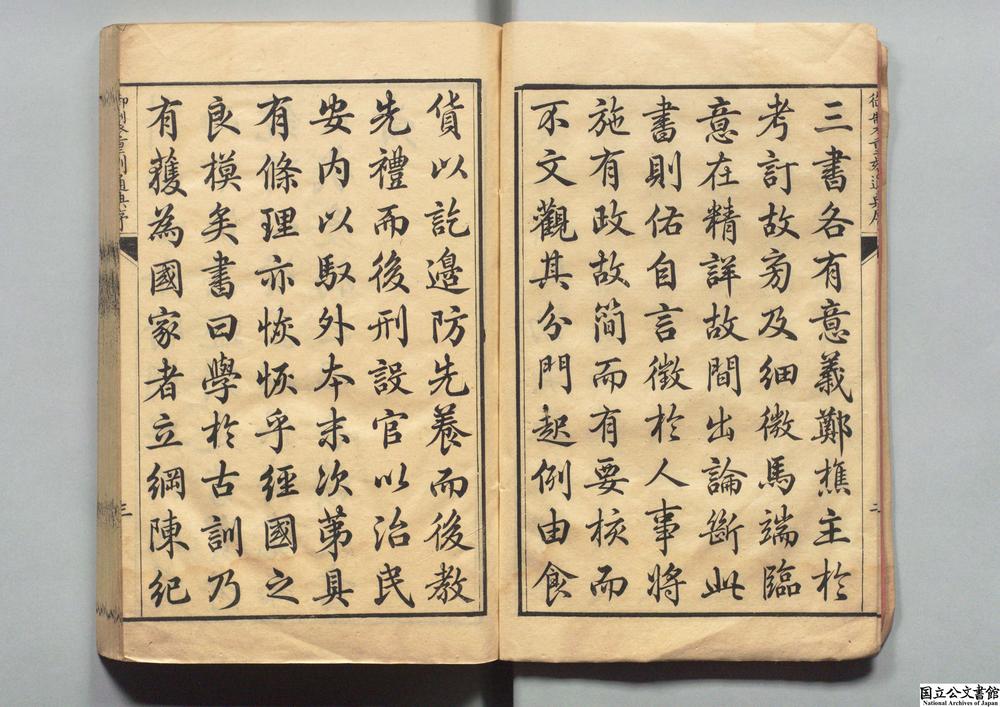 三書各有意義鄭樵主於
考訂故旁及細微馬端臨
意在精詳故間出論斷此
書則佑自言徵於人事將
施有政故簡而有要核而
不文觀其分門起例由食
貨以訖邊防先養而後教
先禮而後刑設官以治民
安内以馭外本末次第具
有條理亦恢恢乎經國之
良模矣書曰學於古訓乃
有獲為國家者立綱陳紀
三
国立公文書館
National Archives of Japan